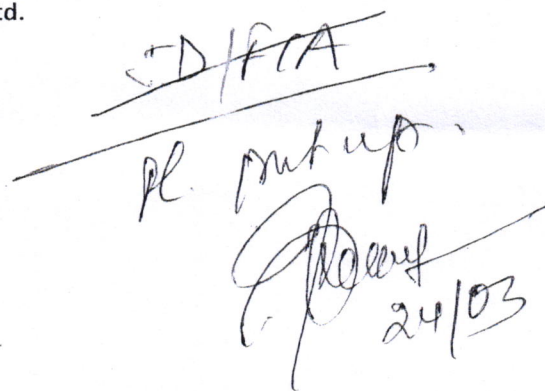 td.
JD/FCA
Pl. put up.
24/03